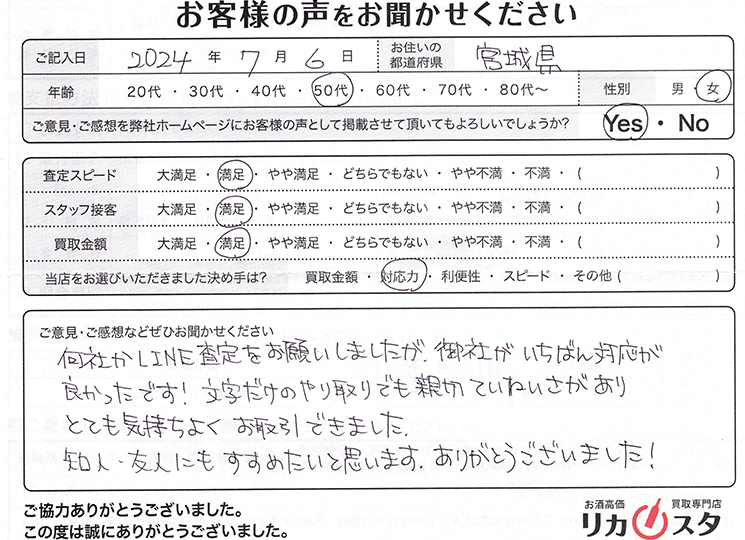 お客様の声をお聞かせください
ご記入日 2024 年 7 月 6 日 お住いの都道府県 宮城県
年齢 20代 ・ 30代 ・ 40代 ・ 50代 ・ 60代 ・ 70代 ・ 80代〜 性別 男 ・ 女
ご意見・ご感想を弊社ホームページにお客様の声として掲載させて頂いてもよろしいでしょうか? Yes ・ No
査定スピード 大満足 ・ 満足 ・ やや満足 ・ どちらでもない ・ やや不満 ・ 不満 ・ ( )
スタッフ接客 大満足 ・ 満足 ・ やや満足 ・ どちらでもない ・ やや不満 ・ 不満 ・ ( )
買取金額 大満足 ・ 満足 ・ やや満足 ・ どちらでもない ・ やや不満 ・ 不満 ・ ( )
当店をお選びいただきました決め手は? 買取金額 ・ 対応力 ・ 利便性 ・ スピード ・ その他 ( )
ご意見・ご感想などぜひお聞かせください
何社かLINE査定をお願いしましたが、御社がいちばん対応が
良かったです! 文字だけのやり取りでも親切ていねいさがあり
とても気持ちよく お取引できました。
知人・友人にもすすめたいと思います。ありがとうございました!
ご協力ありがとうございました。
この度は誠にありがとうございました。
お酒高価 買取専門店
リカスタ